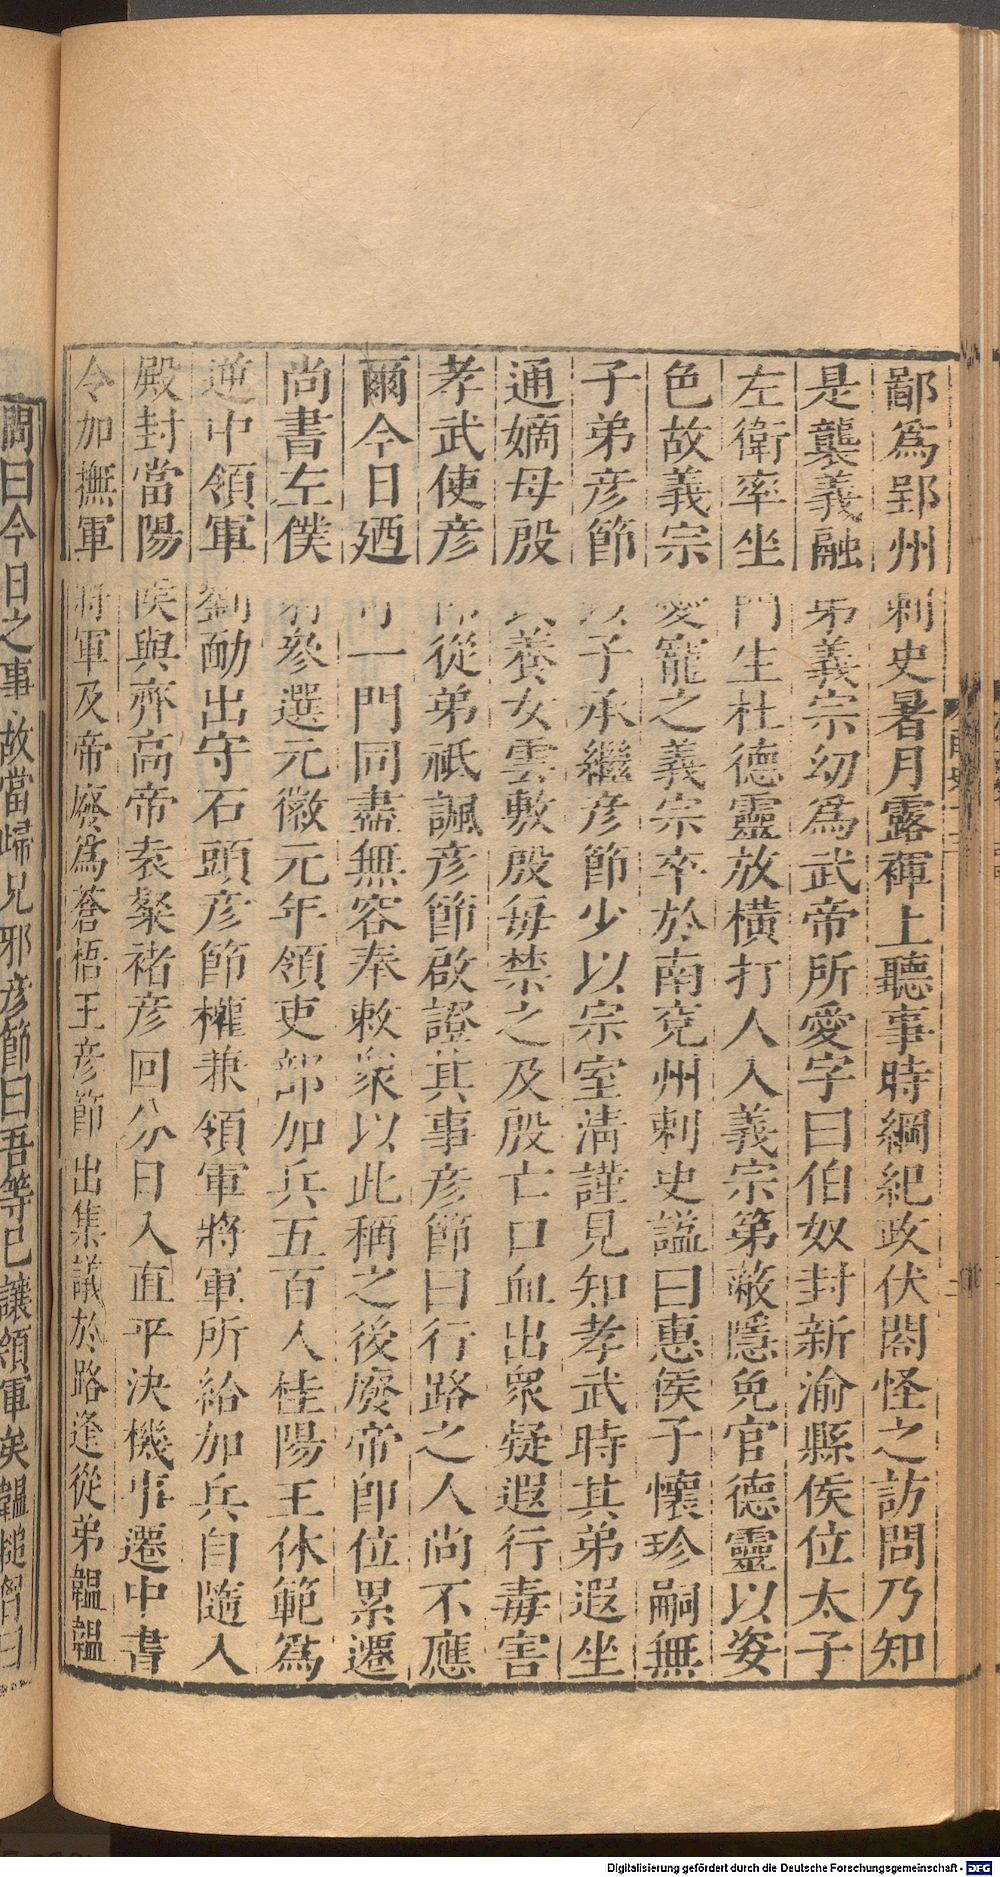 鄙爲郢州刺史暑月露褌上聽事時綱紀政伏閤怪之訪問乃知
是襲義融弟義宗幼爲武帝所愛字曰伯奴封新渝縣侯位太子
左衛率坐門生杜德靈放橫打人入義宗第蔽隱免官德靈以姿
色故義宗愛寵之義宗卒於南兗州刺史謚曰惠侯子懷珍嗣無
子弟彦節以子承繼彦節少以宗室清謹見知孝武時其弟遐坐
通嫡母殷氏養女雲敷殷每禁之及殷亡口血出衆疑遐行毒害
孝武使彦節從弟祇諷彦節啟證其事彦節曰行路之人尚不應
爾今日廼可一門同盡無容奉敕衆以此稱之後廢帝即位累遷
尚書左僕射參選元徽元年領吏部加兵五百人桂陽王休範爲
逆中領軍劉勔出守石頭彦節權兼領軍將軍所給加兵自隨入
殿封當陽侯與齊高帝袁粲褚彦回分日入直平決機事遷中書
令加撫軍將軍及帝廢爲蒼梧王彦節出集議於路逢從弟韞韞
問曰今日之事故當歸兄邪彦節曰吾等已讓領軍矣韞槌胷曰
Digitalisierung gefördert durch die Deutsche Forschungsgemeinschaft - DFG